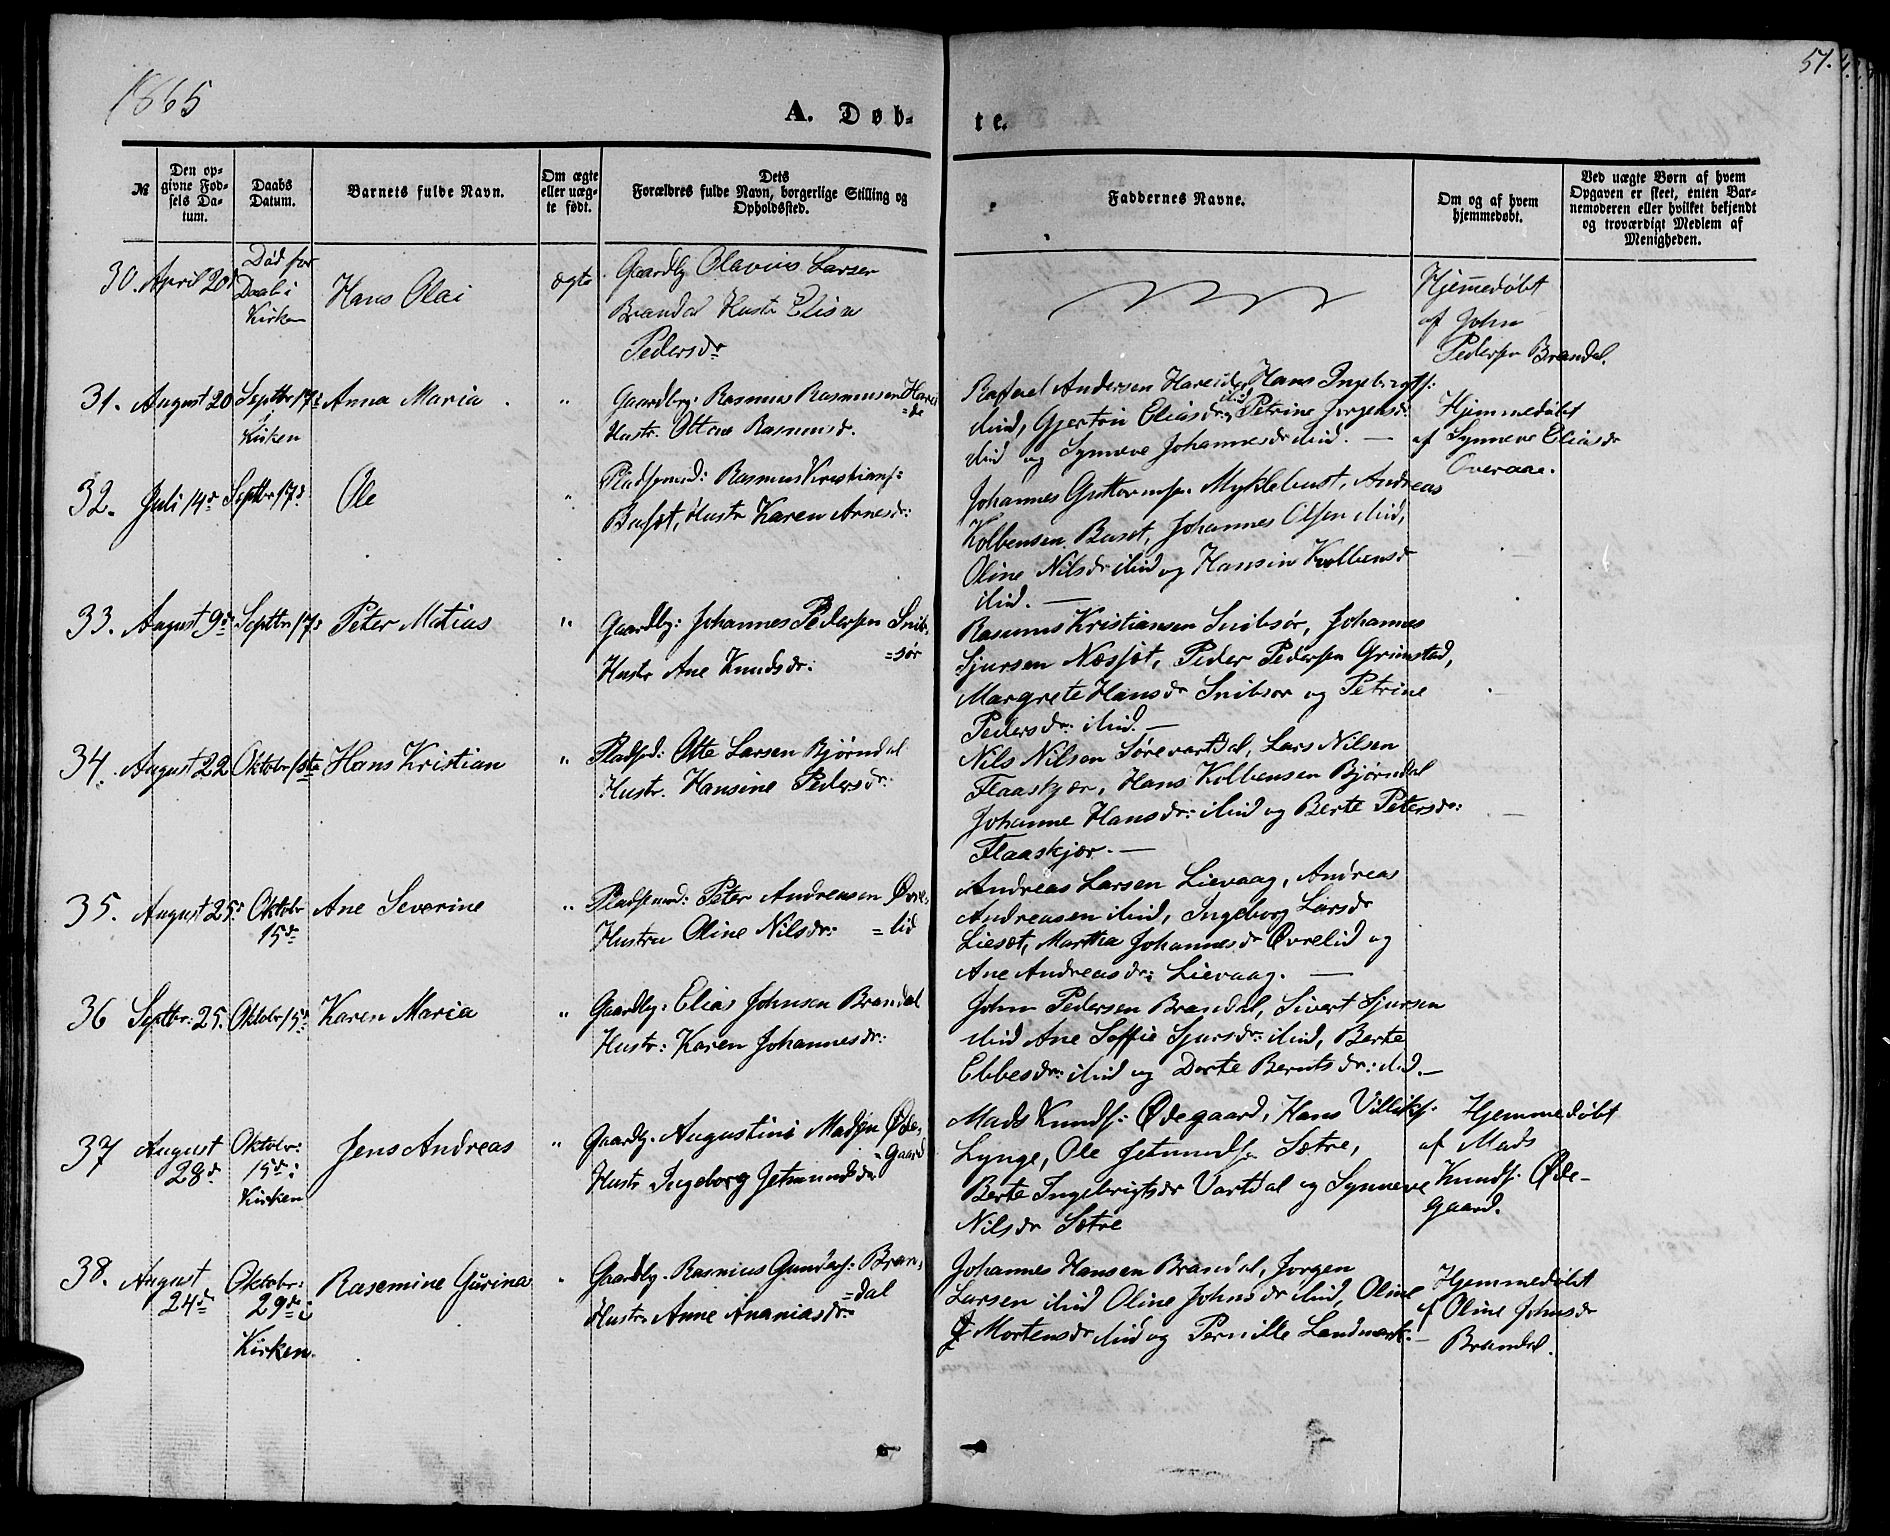 1865
51.
A. Døb-
te.
№
Den op-
givne Fød-
sels Da-
tum.
Daabs
Datum.
Barnets fulde Navn.
Om ægte
eller uæg-
te født.
Dets
Forældres fulde Navn, borgerlige Stilling og
Opholdssted.
Faddernes Navne.
Om og af hvem
hjemmedøbt.
Ved uægte Børn af hvem
Opgaven er skeet, enten Bar-
nemoderen eller hvilket bekjendt
og troværdigt Medlem af
Menigheden.
30. April 20d
Død før
Daab i
Kirken
Hans Olai
ægte
Gaardbg Olavius Larsen
Brandal Hustr Elisa
Pedersdr
Hjemmedøbt
af John
Pedersen Brandal.
31. August 20
Septbr 17d
i
Kirken
Anna Maria
"
Gaardbrg: Rasmus Rasmussen Harei
=de
Hustr. Ottone Rasmusd.
Rafael Andersen Hareide, Hans Ingebrigts:
ibid, Gjertru Eliasdr ibid, Petrine Jørgensdr
ibid og Synneve Johannesdr ibid. —
Hjemmedøbt
af Synneve Eliasdr
Overaae.
32. Juli 14d
Septbr 17d
Ole
"
Pladsmd: Rasmus Kristians:
Busæt, Hustr Karen Arnesdr:
Johannes Guttormsen Myklebust, Andreas
Kolbensen Buset, Johannes Olsen ibid,
Oline Nilsdr ibid og Hansin Kolbensdr
ibid. —
33. August 9d
Septbr 17d
Peter Matias
"
Gaardbg: Johannes Pedersen Snib-
=sør
Hustr Ane Knudsdr:
Rasmus Kristiansen Snibsør, Johannes
Sjursen Næssæt, Peder Pedersen Grimstad,
Margrete Hansdr Snibsør og Petrine
Pedersdr: ibid. —
34. August 22
Oktobr 1ste
Hans Kristian
"
Pladsmd: Otte Larsen Bjørndal
Hustr. Hansine Pedersdr:
Nils Nilsen Sørevartdal, Lars Nilsen
Flaaskjær, Hans Kolbensen Bjørndal
Johanne Hansdr: ibid og Berte Petersdr:
Flaaskjær. —
35. August 25d
Oktobr
15d
Ane Severine
"
Pladsmd: Peter Andreasen Øvre-
=lid
Hustru Oline Nilsdr:
Andreas Larsen Lievaag, Andreas
Andreasen ibid, Ingeborg Larsdr
Liesæt, Martha Johannesdr Øvrelid og
Ane Andreasdr: Lievaag. —
36 Septbr: 25.
Oktobr 15d
Karen Maria
"
Gaardbg: Elias Johnsen Brandal
Hustr: Karen Johannesdr:
John Pedersen Brandal, Sivert Sjursen
ibid Ane Soffie Sjursdr: ibid, Berte
Ebbesdr: ibid og Dorte Berntsdr: ibid. —
37 August
28d
Oktobr:
15d i
Kirken
Jens Andreas
"
Gaardbg. Augustinus Madsen Øde-
=gaard
Hustr Ingeborg Jetmundsdr
Mads Knuds: Ødegaard, Hans Villiks:
Lynge, Ole Jetmundsen Sætre,
Berte Ingebrigtsdr Vartdal og Synneve
Nilsdr Sætre
Hjemmedøbt
af Mads
Knuds: Øde-
gaard.
38. August
24d
Oktobr:
29d i
Kirken.
Rasemine Gurina
"
Gaardbg. Rasmus Gunders: Bran-
=dal
Hustr. Anne Ananiasdr:
Johannes Hansen Brandal, Jørgen
Larsen ibid Oline Johnsdr ibid, Oline
Mortensdr ibid og Pernille Landmark. —
Hjemmedøbt
af Oline Johnsdr
Brandal.